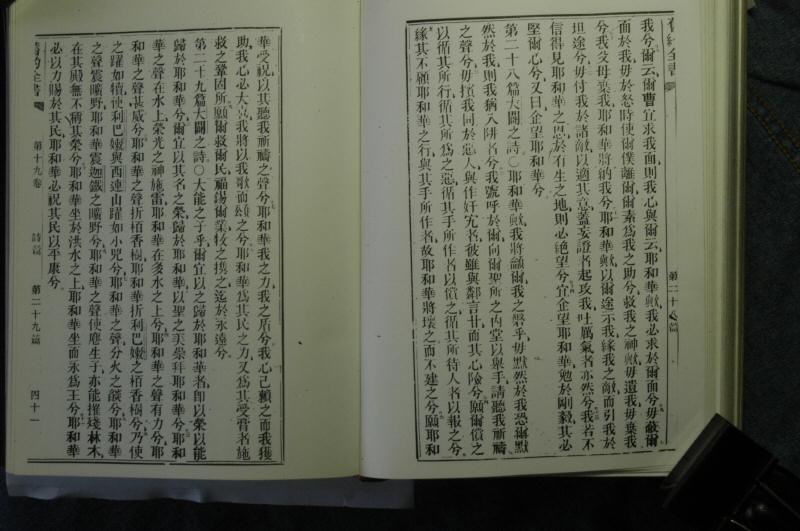 舊約全書
第二十八篇
我兮爾云爾曹宜求我面則我心與爾云耶和華歟我必求於爾面兮毋蔽爾
面於我毋於怒時使爾僕離爾爾素爲我之助兮救我之神歟毋遺我毋棄我
兮我父母棄我耶和華將納我兮耶和華歟以爾途示我緣我之敵而引我於
坦途兮毋付我於諸敵以適其意蓋妄證者起攻我吐厲氣者亦然兮我若不
信得見耶和華之恩於有生之地則必絕望兮宜企望耶和華勉於剛毅其必
堅爾心兮又曰企望耶和華兮
第二十八篇大闢之詩○耶和華歟我將籲爾我之磐乎毋默然於我恐爾默
然於我則我猶入阱者兮我號呼於爾向爾聖所之內堂以舉手請聽我祈禱
之聲兮毋擯我同於惡人與作奸宄者彼雖與鄰言甘而其心險兮願爾償之
以循其所行循其所爲之惡循其手所作者以償之循其所待人者以報之兮
緣其不顧耶和華之行與其手所作者故耶和華將壞之而不建之兮願耶和
華受祝以其聽我祈禱之聲兮耶和華我之力我之盾兮我心已賴之而我獲
助我心必大喜我將以我歌而頌之兮耶和華爲其民之力又爲其受膏者施
救之鞏固所願爾救爾民福錫爾業牧之攜之迄於永遠兮
第二十九篇大闢之詩○大能之子乎爾宜以之歸於耶和華者卽以榮以能
歸於耶和華兮爾宜以其名之榮歸於耶和華以聖之美崇拜耶和華兮耶和
華之聲在水上榮光之神施雷耶和華在多水之上兮耶和華之聲有力兮耶
和華之聲甚威兮耶和華之聲折栢香樹耶和華折利巴嫩之栢香樹兮乃使
之躍如犢使利巴嫩與西連山躍如小兕兮耶和華之聲分火之燄兮耶和華
之聲震曠野耶和華震迦鐵之曠野兮耶和華之聲使麀生子亦能摧殘林木
在其殿無不稱其榮兮耶和華坐於洪水之上耶和華坐而永爲王兮耶和華
必以力賜於其民耶和華必祝其民以平康兮
舊約全書
第十九卷
詩篇
第二十九篇
四十一